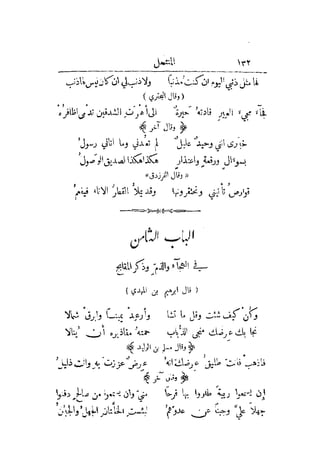 ١٣٢ المنتحل
فما مثل ذنبي اليوم ان كنت مذنبا ولا ذنب لي ان كان ليس له ذنب
( وقال البحتري )
فجاء مجيء العير قادته حيرة الى أهرت الشدقين تدمى اظافره
﴿ وقال آخر ﴾
خبروني انني وحيد عليل لم تعدني وما اتاني رسول
بسؤال ورقعة واعتذار هكذا هكذا الصديق الوصول
« وقال الفرزدق »
قوارص تأتيني وتحتقرونها وقد يملأ القطر الاناء فيفعم
الباب الثامن
في الهجاء والذم وذكر المقابح
( قال ابرهيم بن المهدي )
وكن كيف شئت وقل ما تشا وأرعد يمينا وابرق شمالا
نجا بك عرضك منجى الذباب حمته مقاذيره أن ينالا
﴿ وقال مسلم بن الوليد ﴾
فاذهب فانت طليق عرضك انه عرض عززت به وانت ذليل
﴿ وقال آخر ﴾
إن يسمعوا ريبة طاروا بها فرحا مني وان يسمعوا من صالح دفنوا
جهلا علي وجبنا عن عدوهم لبئست الخلتان الجهل والجبن